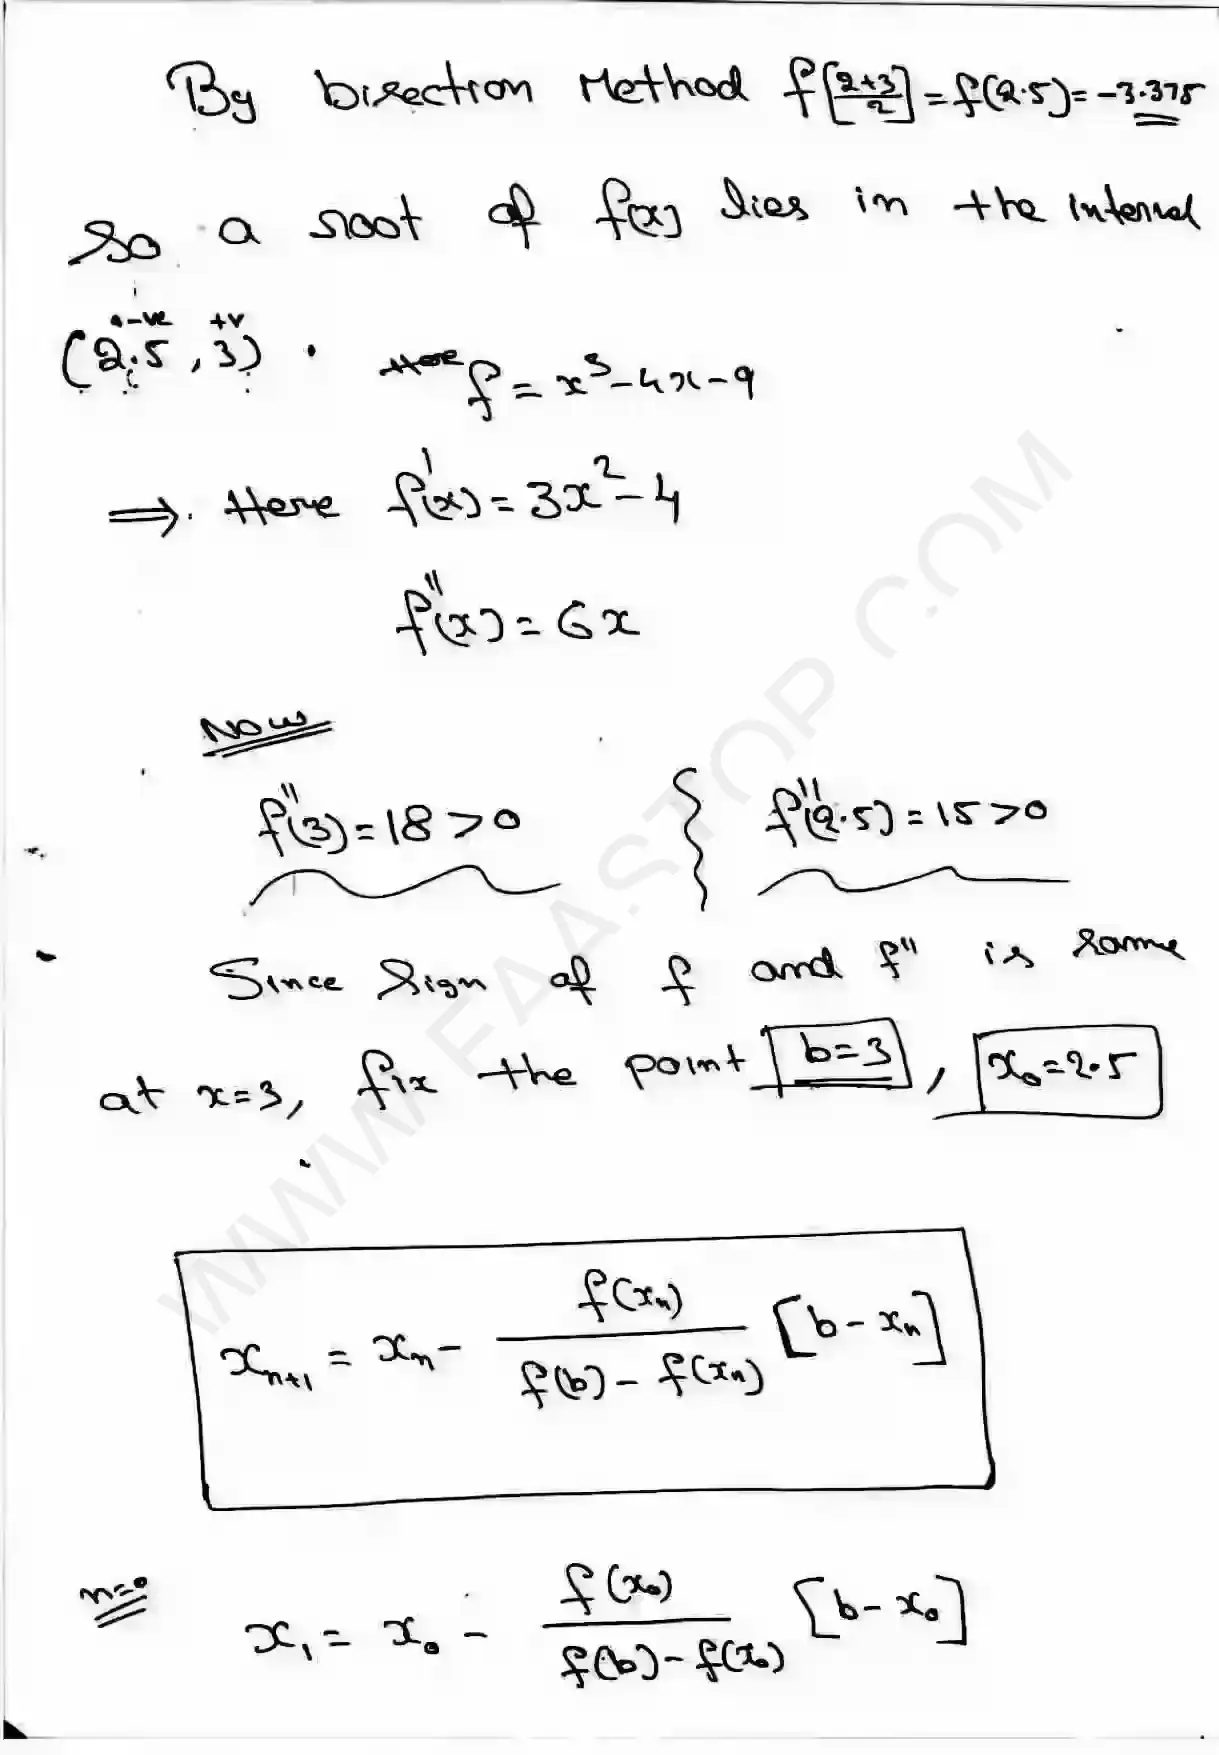 By bisection Method f[2+3/2] = f(2.5) = -3.375
So a root of f(x) lies in the Interval
-ve +v
(2.5, 3).
f = x³-4x-9
⟹ Here f'(x) = 3x²-4
f''(x) = 6x
Now
f''(3) = 18 > 0 f''(2.5) = 15 > 0
Since Sign of f and f'' is same
at x=3, fix the point b=3, x₀=2.5
xₙ₊₁ = xₙ - f(xₙ)/f(b) - f(xₙ) [b - xₙ]
n=0
x₁ = x₀ - f(x₀)/f(b) - f(x₀) [b - x₀]
WWW.FAASTOP.COM